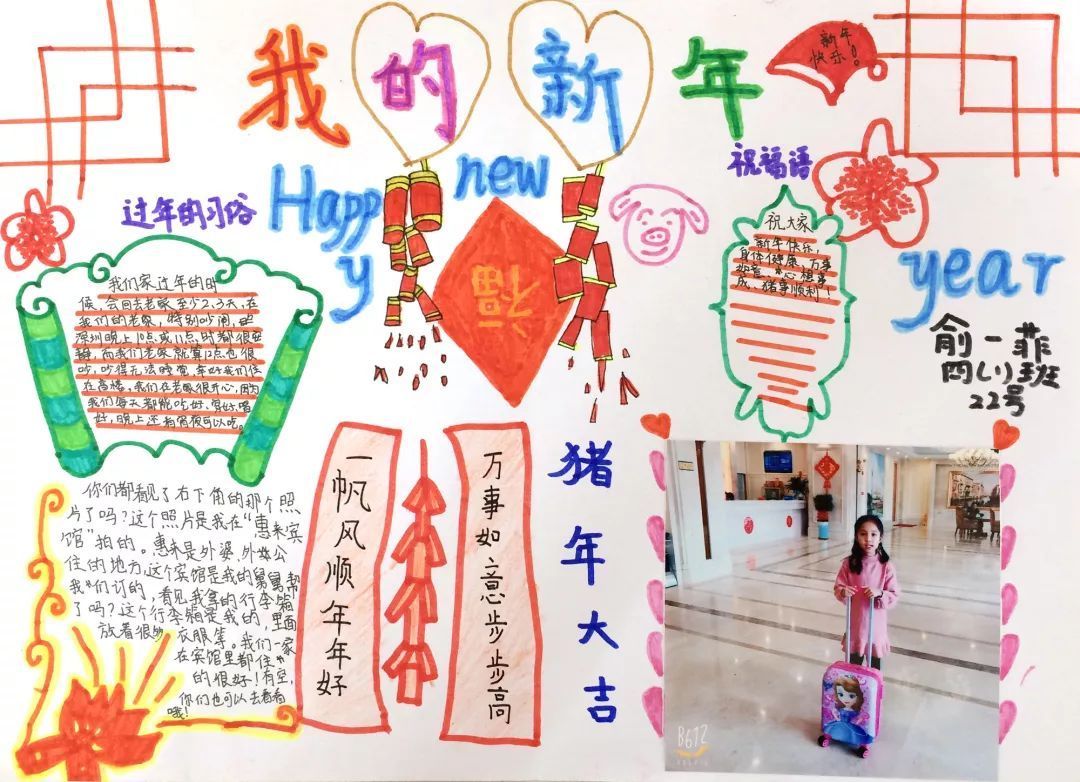 我的新年
新年
快乐!
Happy
new
year
过年的习俗
祝福语
福
我们家过年的时
候,会回去老家至少2、3天,在
我们的老家,特别吵闹,
深圳晚上10点或11点时都很安
静,而我们老家就算12点也很
吵,吵得无法睡觉,幸好我们住
在高楼。我们在老家很开心,因为
我们每天都能吃好、穿好、喝
好,晚上还有宵夜可以吃。
祝大家
新年快乐,
身体健康,万事
如意,心想事
成,猪事顺利!
俞一菲
四(1)班
22号
你们都看见了右下角的那个照
片了吗?这个照片是我在“惠来宾
馆”拍的。惠来是外婆、外公
住的地方,这个宾馆是我的舅舅帮
我们订的,看见我拿的行李箱
了吗?这个行李箱是我的,里面
放着很多衣服等。我们一家
在宾馆里都住
的很好!有空,
你们也可以去看看
哦!
一帆风顺年年好
万事如意步步高
猪年大吉
B612